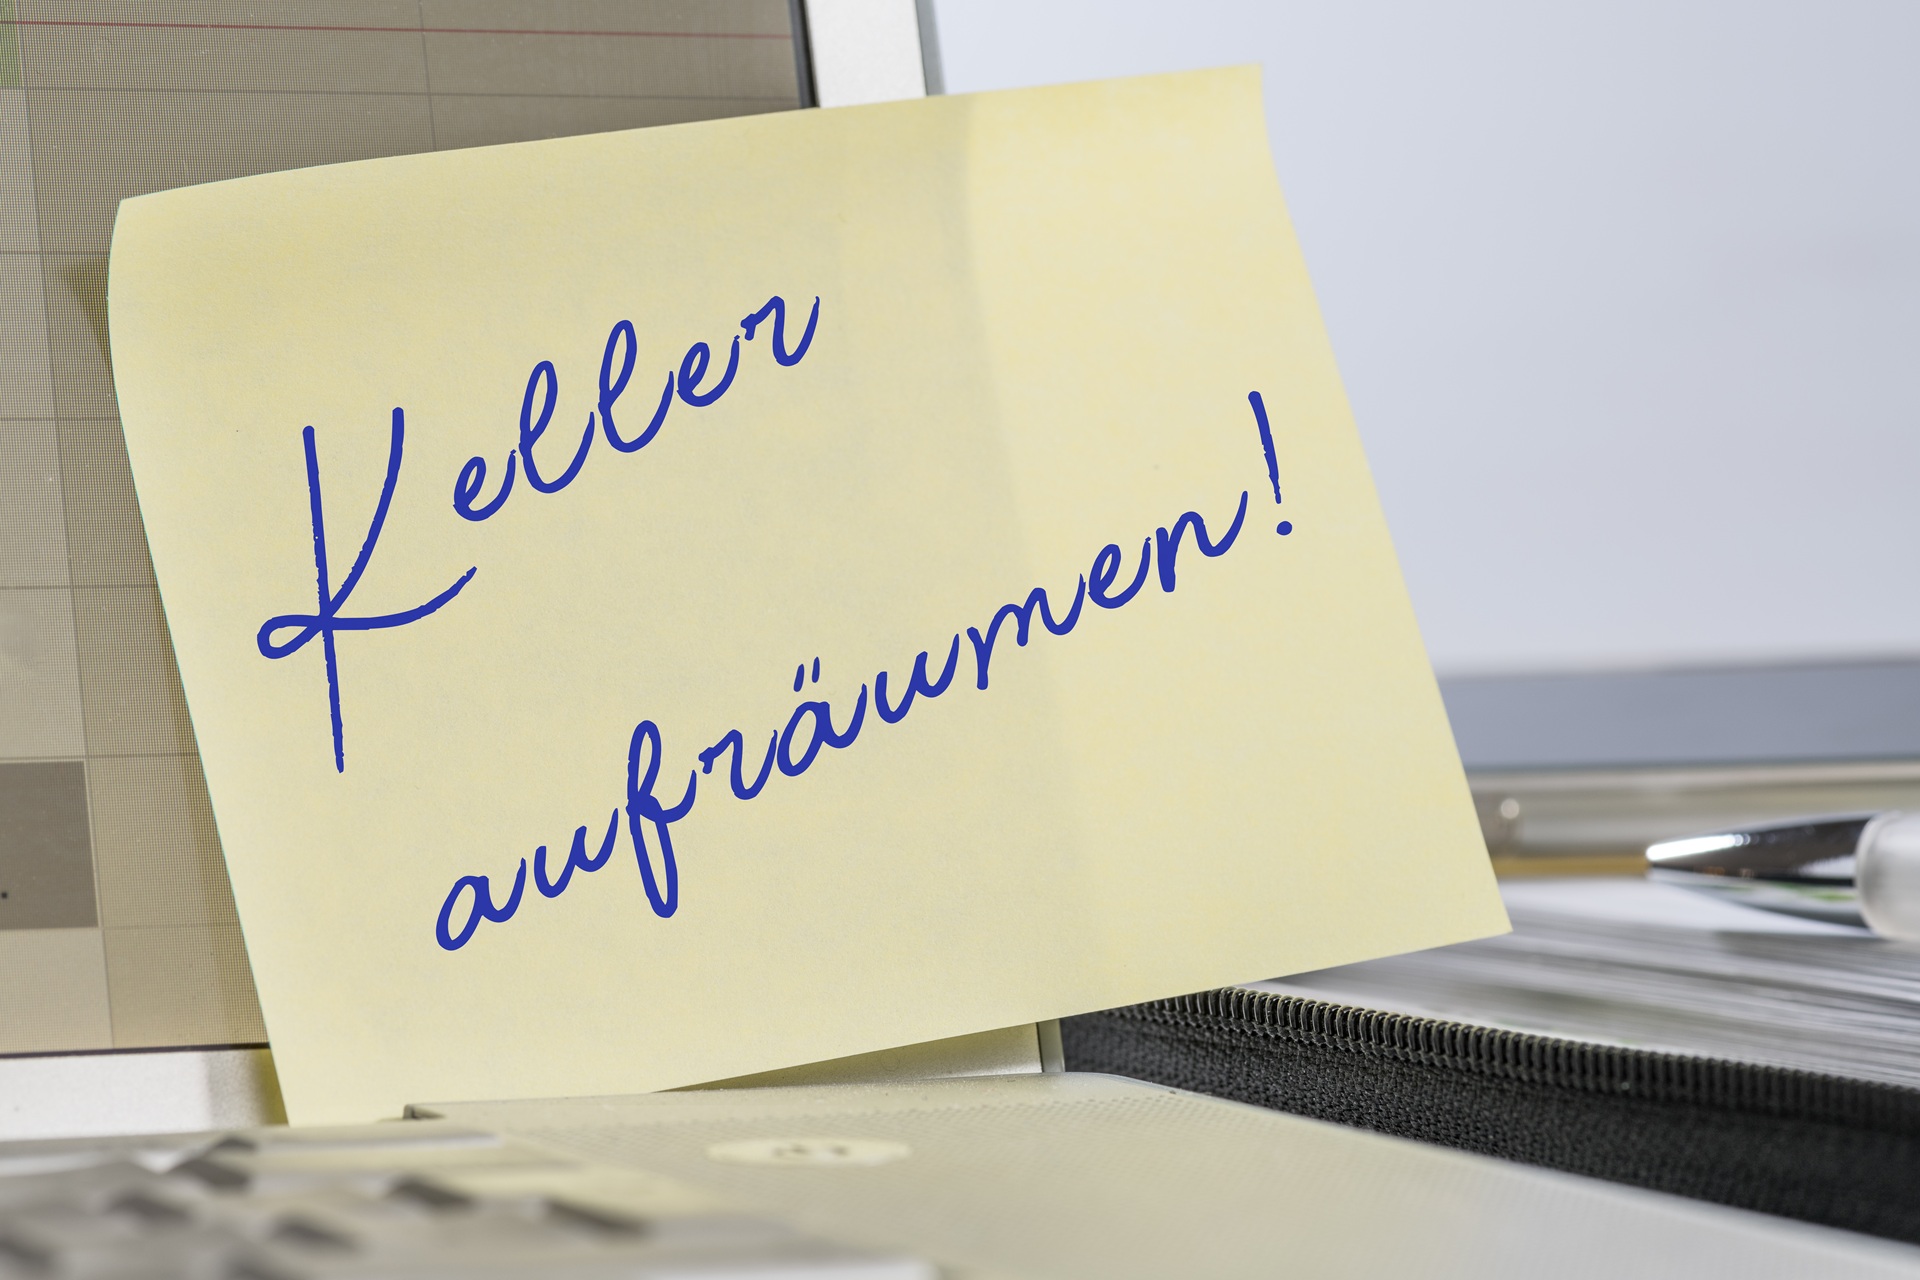 Keller
aufräumen!